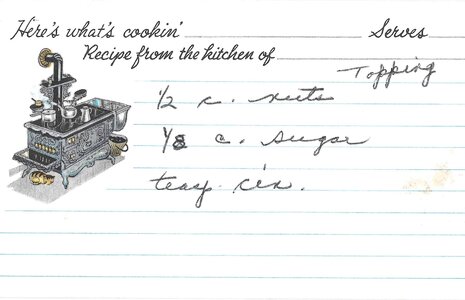 Here's what's cookin' Serves
Recipe from the kitchen of
Topping
1/2 c. nuts
c. sugar
teasp. cin.